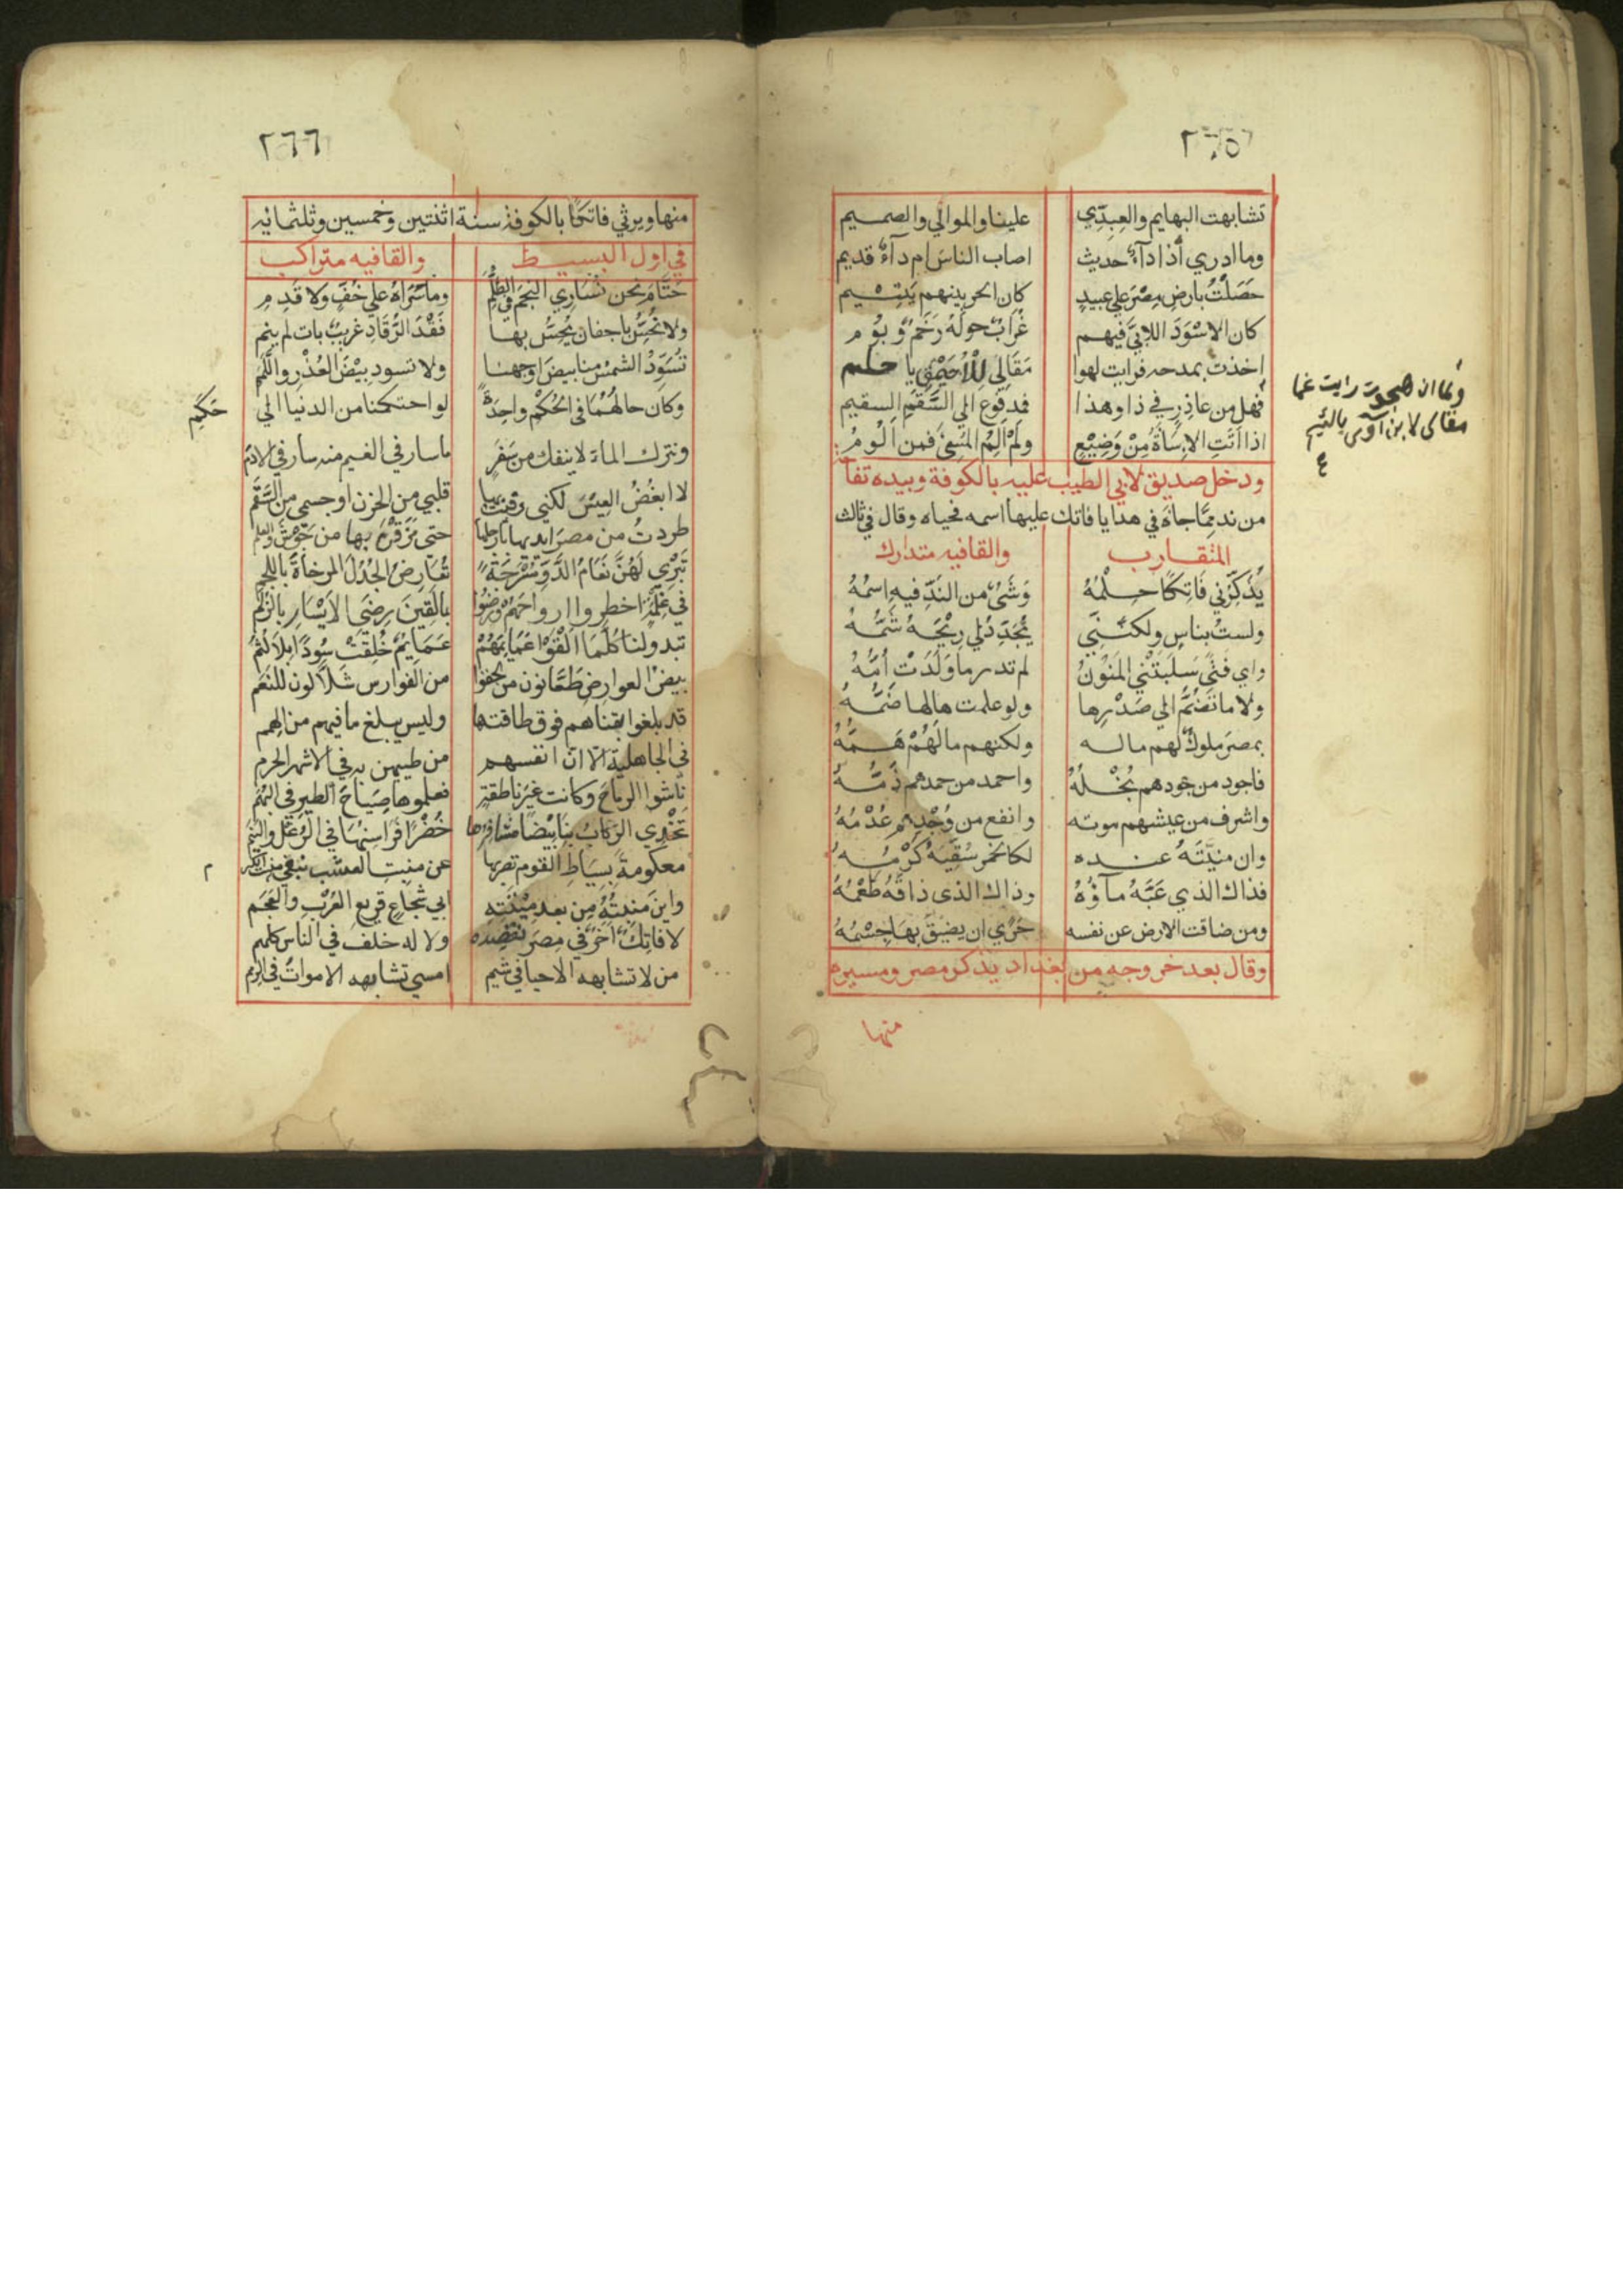 ٢٦٥
تشابهت البهايم والعِبِدَّي علينا والموالي والصميم
وما ادري أذا دآءٌ حديث اصاب الناسَ ام دآءٌ قديم
حَصَلْتُ بارضِ مِصْرَ علي عبيدٍ كان الحر بينهم يَتِيْم
كان الاسْوَدَ اللابيَّ فيهم غُرَابٌ حولَهُ رَخَمٌ وَبُوْم
اخذت بمدحه فرايت لهوا مَقَالِي لِلْأُحَيْمِقِ يا حليم
ولما ان هجوت رايت عيا
مقالي لابن آوى يالئيم
فهل من عاذرٍ في ذا وهذا فمدفوع الي السَّقَمِ السقيم
اذا اتَتِ الاِسَآءَةُ مِنْ وَضِيْعٍ ولَمْ اَلُمِ المُسِئَ فمن اَلُوْمُ
ودخل صديق لابي الطيب عليه بالكوفة وبيده تفا
من ند مِمَّا جاءَه في هدايا فاتك عليها اسمه فحياه وقال في ثالث
المتقارب والقافيه متدارك
يُذَكِّرُني فَاتِكًا حِلْمُهُ وَشَئٌ من النَدِّ فيهِ اسمُهُ
ولستُ بناسٍ ولكنَّنِي يُجَدِّدُ لي رِيْحَهُ شَمُّهُ
واي فتًى سَلَبَتْنِي المَنُوْنُ لم تدر ما وَلَدَتْ اُمُّهُ
ولا ما تَضُمُّ الي صَدْرِها ولو علمت هالها ضَمُّهُ
بمصرَ ملوكٌ لهم ماله ولكنهم مالَهُمْ هَمُّهُ
فاجود من جودهم بُخْلُهُ واحمد من حمدهم ذَمُّهُ
واشرف من عيشهم موته وانفع من وُجْدِهِم عُدْمُهُ
وان منيَّتَهُ عنده لكالخمر سُقِّيَهُ كَرْمُهُ
فذاك الذي عَبَّهُ مآؤُهُ وذاك الذي ذاقَهُ طَعْمُهُ
ومن ضاقت الارض عن نفسه حَرًي ان يضيقَ بِهَا جِسْمُهُ
وقال بعد خروجه من بغداد يذكر مصر ومسيره
منها
٢٦٦
منها ويرثي فاتكًا بالكوفة سنة اثنتين وخمسين وثلثمائه
في اول البسيط والقافيه متراكب
حَتَّامَ نحن نُسَارِي النجمَ في الظُلَمِ وما سُرَاهُ علي خُفٍّ ولا قَدِمِ
ولا نُحِسُّ باجفان يُحِسُّ بها فَقْدَ الرُّقَادِ غريبٌ بات لم ينم
تُسَوِّدُ الشمسُ منا بيضَ اوجهنا ولا تسود بِيْضَ العُذْرِ واللَّمَمِ
وكان حالهُمَا في الحُكْمِ واحِدَةً لو احتكمنا من الدنيا الي
حَكَمِ
ونترك المآءَ لا ينفك من سَفَرٍ ما سار في الغيم منه سار في الادَم
لا ابغُضُ العِيْسَ لكني وقيت بها قلبي من الحزن او جسمي من السَّقَم
طردتُ من مصرَ ايديها بارجلها حتى مَرَقْنَ بها من جَوْشَ والعلم
تَبْرِي لَهُنَّ نَعَامُ الدَّوِّ مُسْرَجَةً تُعَارِضُ الجُدُلَ المُرخاةَ باللجم
في غِلْمَةٍ اخطروا ارواحَهُمْ ورَضُوا بما لَقِينَ رِضَى الاَيْسَارِ بالزُّلَم
تبدو لنا كُلَّمَا القَوْا عَمَايِمَهُمْ عَمَايِمٌ خُلِقَتْ سُوْدًا بِلَا لُثُمُ
بيضُ العوارضِ طَعَّانون من لحقوا من الفوارس شَلَّالون للنَعَمِ
قد بلغوا بقناهم فوق طاقتها وليس يبلغ ما فيهم من الهِمم
في الجاهلية الا ان انفسهم من طيبهن به في الاشهر الحرم
ناشوا الرماحَ وكانت غيرَ ناطقة فعلموها صِيَاحَ الطيرِ في البُهَمِ
تَخْدِي الرِّكَابُ بِنَا بِيْضًا مَشَافِرُها خُضْرًا فَرَاسِنُهَا في الرُغْلِ واليَنَم
معكومةً بِسِيَاطِ القوم نضربها عن منبِتِ العشب نبغي منبت الكرم
وايْنَ منبِتُهُ مِن بعدِ مِيْتَتِهِ ابي شُجَاعٍ قَرِيعِ العُرْبِ والعَجَم
لا فاتِكٌ آخَرٌ في مِصرَ نَقْصِدُه ولا له خلف في الناس كلهم
من لا تشابهه الاحيا في شيم امسي تشابهه الاموات في الرمم